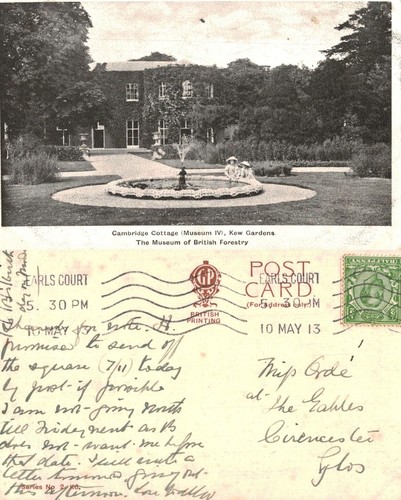 Cambridge Cottage (Museum IV), Kew Gardens
The Museum of British Forestry
EARLS COURT
5. 30 PM
10 MAY 13
BRITISH
PRINTING
POST
CARD
(For Address only.)
EARLS COURT
5. 30 PM
10 MAY 13
HALFPENNY
for note. H.
promises to send off
the square (7/11) today
by post if possible
I am not going North
till Friday next as B
does not want me before
that date. I will write a
letter
this afternoon. Love
Series No. 2. K6.
Miss Orde
at The Gables
Cirencester
Glos